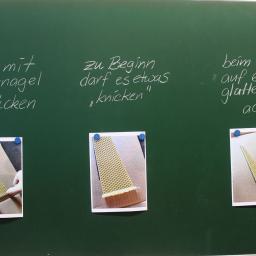 mit
nagel
zu Beginn
darf es etwas
„knicken"
beim
"auf e
glatte